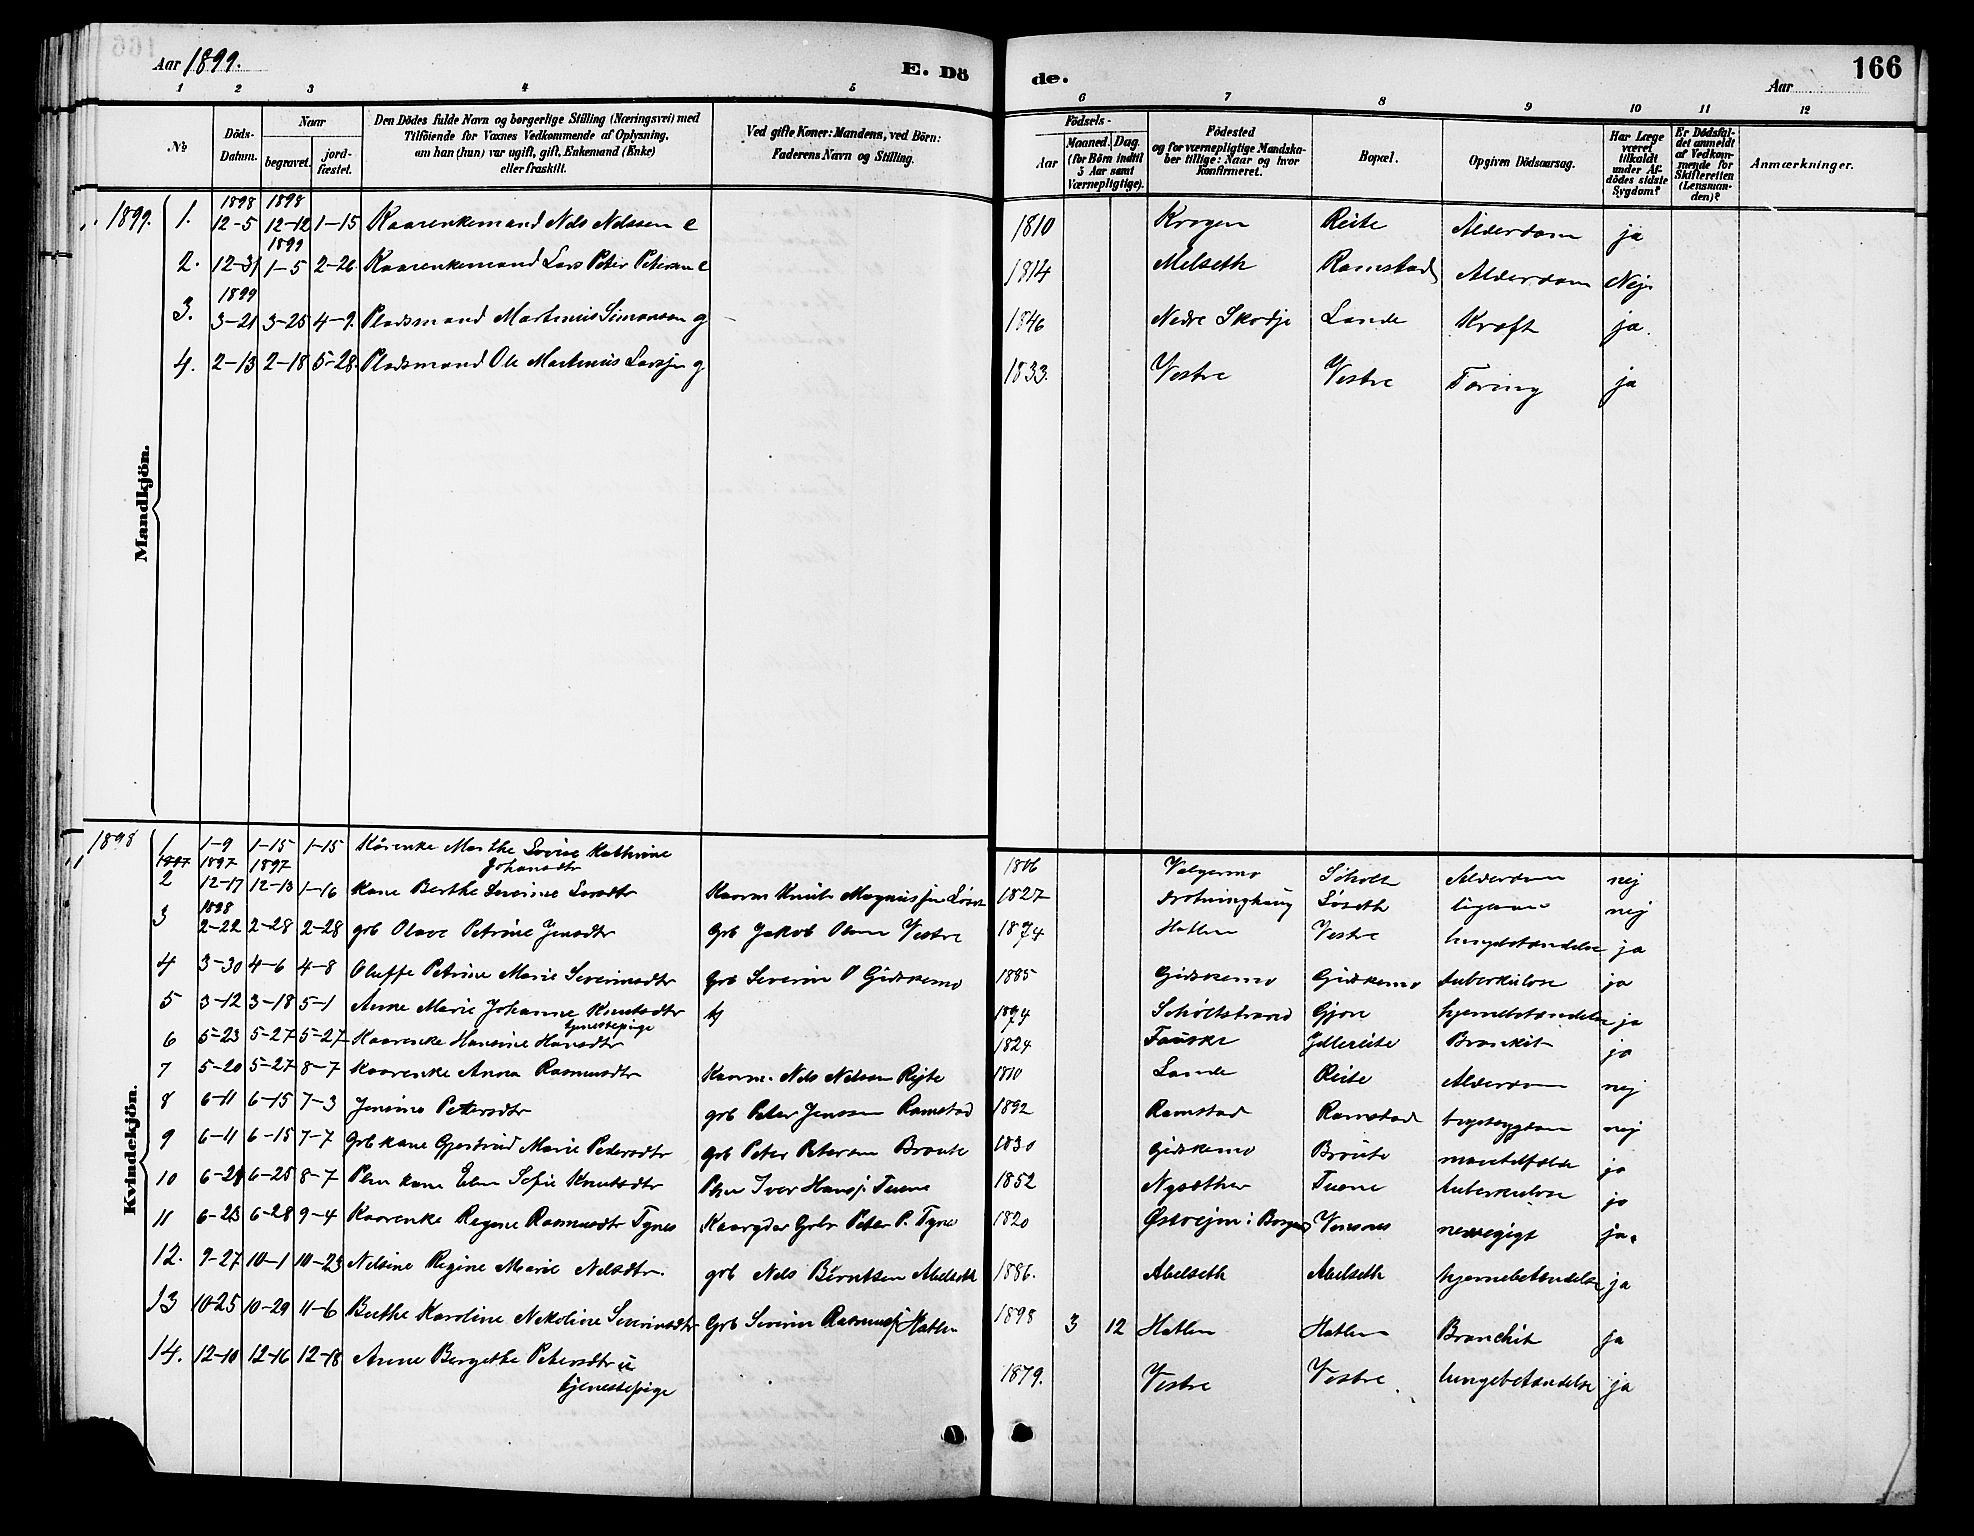 Aar 1899.
E. Dö
de.
Aar
166
1 2 3 4 5 6 7 8 9 10 11 12
No
Döds-
Datum.
Naar
begravet.
jord-
fæstet.
Den Dödes fulde Navn og borgerlige Stilling (Næringsvei) med
Tilföiende for Voxnes Vedkommende af Oplysning,
om han (hun) var ugift, gift, Enkemand (Enke)
eller fraskilt.
Ved gifte Koner: Mandens, ved Börn:
Faderens Navn og Stilling.
Födsels-
Aar
Maaned. Dag.
(for Börn indtil
5 Aar samt
Værnepligtige).
Födested
og for værnepligtige Mandska-
ber tillige: Naar og hvor
Konfirmeret.
Bopæl.
Opgiven Dödsaarsag.
Har Læge
været
tilkaldt
under Af-
dödes sidste
Sygdom?
Er Dödsfal-
det anmeldt
af Vedkom-
mende for
Skifteretten
(Lensman-
den)?
Anmærkninger.
Mandkjön.
1899.
1898 1898
1. 12-5 12-12 1-15 Kaarenkemand Nils Nilssen e 1810 Krogen Reite Alderdom ja
1899
2. 12-31 1-5 2-26 Kaarenkemand Lars Peter Petersen e 1814 Melseth Ramstad Alderdom Nej
1899
3. 3-21 3-25 4-9. Pladsmand Martinus Simonsen g 1846 Nedre Skodje Lande Kræft ja.
4. 2-13 2-18 5-28. Pladsmand Ole Martinus Larsen g 1833. Vestre Vestre Tæring ja
Kvindekjön.
1898
1 1-9 1-15 1-15 Kårenke Marthe Lovise Kathrine
Johansdtr 1816 Valgermo Sjøholt Alderdom nej
1897 1897 1897
2 12-17 12-13 1-16 kone Berthe Severine Larsdtr Kaarm Knut Magnussen 1827 Løseth nej
1898
3 2-22 2-28 2-28 grb Olave Petrine Jensdtr Grb Jakob Olsen Vestre 1874 Hatlen Vestre ja
4 3-30 4-6 4-8 Oluffe Petrine Marie Severinsdtr Grb Severin O Gidskemo 1885 Gidskemo Gidskemo tuberkulose ja
5 3-12 3-18 5-1 Anne Marie Johanne Knutsdtr
tjenestepige 1874 Sjøholtstrand hjernebetændelse ja
6 5-23 5-27 5-27 Kaarenke Hansine Hansdtr 1824 Fauske Bronkit ja
7 5-20 5-27 8-7 Kaarenke Anna Rasmusdtr Kaarm. Nils Nilssen Rejte 1810 Lande Reite Alderdom nej
8 6-11 6-15 7-3 Jensine Pettersdtr grb Peter Jenssen Ramstad 1892 Ramstad Ramstad brystsygdom nej
9 6-11 6-15 7-7 Grb kone Gjertrud Marie Pedersdtr grb Peter Petersen Braute 1830 Gidskemo Braute ja
10 6-21 6-25 8-7 Plm kone Elen Sofie Knutsdtr Plm Iver Hansen Tuene 1852 Nysæther Tuene tuberkulose ja
11 6-23 6-28 9-4 Kaarenke Regine Rasmusdtr Tynes Peter P. Tynes 1820 ja.
12. 9-27 10-1 10-23 Nilsine Regine Marie Nilsdtr. grb Nils Berntsen Abelseth 1886. Abelseth Abelseth hjernebetændelse ja
13 10-25 10-29 11-6 Berthe Karoline Nikoline Severinsdtr Grb Severin Rasmussen Hatlen 1898 3 12 Hatlen Hatlen Bronchit ja
14. 12-10 12-16 12-18 Anne Bergethe Petersdtr u
tjenestepige 1879. Vestre Vestre. lungebetændelse ja